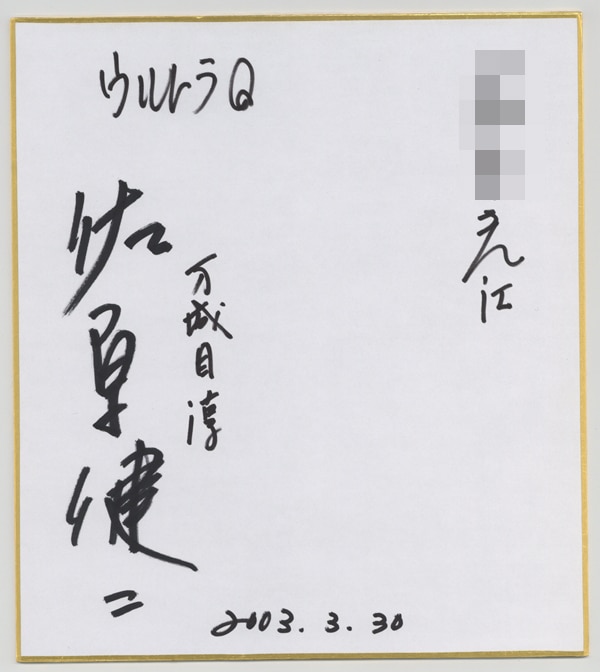 ウルトラQ
さん江
万城目淳
佐原健二
2003.3.30